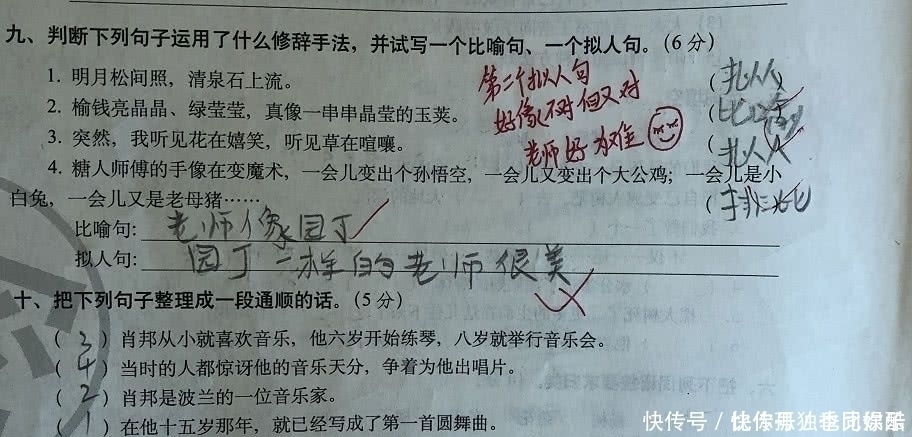 九、判断下列句子运用了什么修辞手法，并试写一个比喻句、一个拟人句。（6分）
1. 明月松间照，清泉石上流。
2. 榆钱亮晶晶、绿莹莹，真像一串串晶莹的玉荚。
3. 突然，我听见花在嬉笑，听见草在喧嚷。
4. 糖人师傅的手像在变魔术，一会儿变出个孙悟空，一会儿又变出个大公鸡；一会儿是小
白兔，一会儿又是老母猪……
第二个拟人句
好像不对但又对
老师好为难
（比喻）
（排比）
比喻句：老师像园丁
拟人句：园丁一样的老师很美
十、把下列句子整理成一段通顺的话。（5分）
（3）肖邦从小就喜欢音乐，他六岁开始练琴，八岁就举行音乐会。
（4）当时的人都惊讶他的音乐天分，争着为他出唱片。
（2）肖邦是波兰的一位音乐家。
（1）在他十五岁那年，就已经写成了第一首圆舞曲。
快传号／